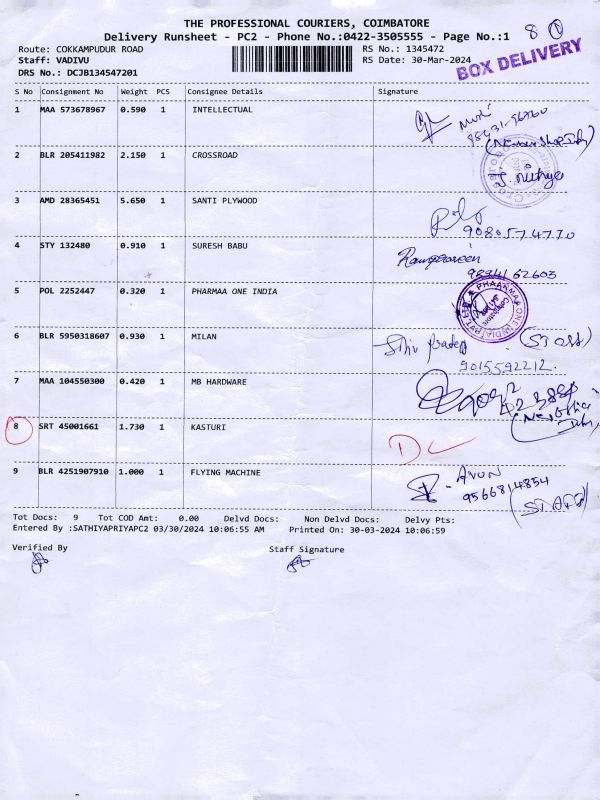 THE PROFESSIONAL COURIERS, COIMBATORE
Delivery Runsheet - PC2 - Phone No.:0422-3505555 - Page No.:1
8
Route: COKKAMPUDUR ROAD
RS No.: 1345472
Staff: VADIVU
RS Date: 30-Mar-2024
DRS No.: DCJB134547201
BOX DELIVERY
S No Consignment No Weight PCS Consignee Details Signature
1 MAA 573678967 0.590 1 INTELLECTUAL
2 BLR 205411982 2.150 1 CROSSROAD
3 AMD 28365451 5.650 1 SANTI PLYWOOD
9080574770
4 STY 132480 0.910 1 SURESH BABU
9894162603
5 POL 2252447 0.320 1 PHARMAA ONE INDIA
6 BLR 5950318607 0.930 1 MILAN
(Staff)
9015592212.
7 MAA 104550300 0.420 1 MB HARDWARE
8 SRT 45001661 1.730 1 KASTURI
9 BLR 4251907910 1.000 1 FLYING MACHINE
- Arun
9566814854
(STAFF)
Tot Docs: 9 Tot COD Amt: 0.00 Delvd Docs: Non Delvd Docs: Delvy Pts:
Entered By :SATHIYAPRIYAPC2 03/30/2024 10:06:55 AM Printed On: 30-03-2024 10:06:59
Verified By Staff Signature